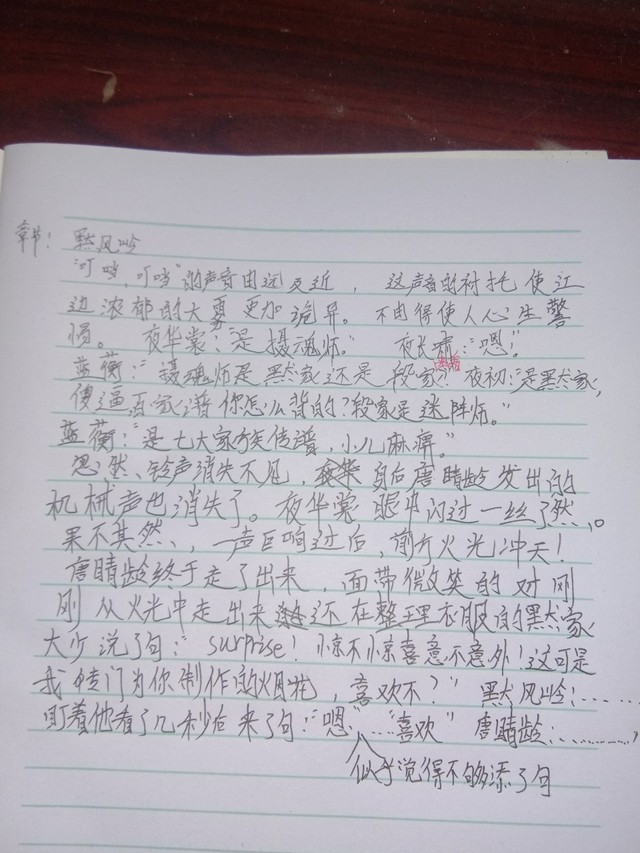 章节：黙风岭
“叮当，叮当”的声音由远及近，这声音的衬托使江
边浓郁的大雾更加诡异。不由得使人心生警
惕。夜华裳：“是摄魂师。”夜长“嗯！”
蓝蘅：“摄魂师是黙家还是段家？”夜初：“是黙家，
傻逼，百家谱你怎么背的？段家是迷阵师。”
蓝蘅：“是七大家族传谱，小儿麻痹。”
忽然、铃声消失不见，身后唐睛龄发出的
机械声也消失了。夜华裳眼中闪过一丝了然，。
果不其然、，一声巨响过后，前方火光冲天！
唐睛龄终于走了出来，面带微笑的对刚
刚从火光中走出来还在整理衣服的黙家
大少说了句：“surprise！惊不惊喜意不意外！这可是
我转门为你制作的烟花，喜欢不？”黙风岭：……
盯着他看了几秒后来了句：“嗯……“喜欢”唐睛龄：………，
似乎觉得不够添了句